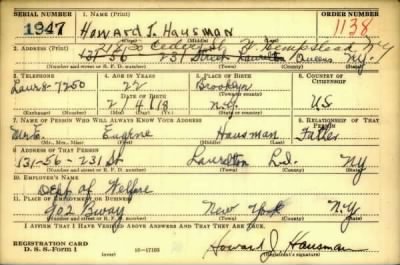 SERIAL NUMBER 1. NAME (Print) ORDER NUMBER
1947 Howard J. Hausman 1138
(First) (Middle) (Last)
2. ADDRESS (Print) Cedar St W. Hempstead NY
131-56 231 Street Laurelton Queens N.Y.
(Number and street or R. F. D. number) (Town) (County) (State)
3. TELEPHONE 4. AGE IN YEARS 5. PLACE OF BIRTH 6. COUNTRY OF CITIZENSHIP
Laur 8-7250 22 Brooklyn
DATE OF BIRTH (Town or county)
2/4/18 N.Y. US
(Exchange) (Number) (Mo.) (Day) (Yr.) (State or country)
7. NAME OF PERSON WHO WILL ALWAYS KNOW YOUR ADDRESS 8. RELATIONSHIP OF THAT PERSON
Mr. Eugene Hausman Father
(Mr., Mrs., Miss) (First) (Middle) (Last)
9. ADDRESS OF THAT PERSON
131-56-231 St Laurelton L.I. NY
(Number and street or R. F. D. number) (Town) (County) (State)
10. EMPLOYER'S NAME
Dept of Welfare
11. PLACE OF EMPLOYMENT OR BUSINESS
902 Bway New York N.Y.
(Number and street or R. F. D. number) (Town) (County) (State)
I AFFIRM THAT I HAVE VERIFIED ABOVE ANSWERS AND THAT THEY ARE TRUE.
REGISTRATION CARD
D. S. S. Form 1 (over) 16-17105 Howard J. Hausman